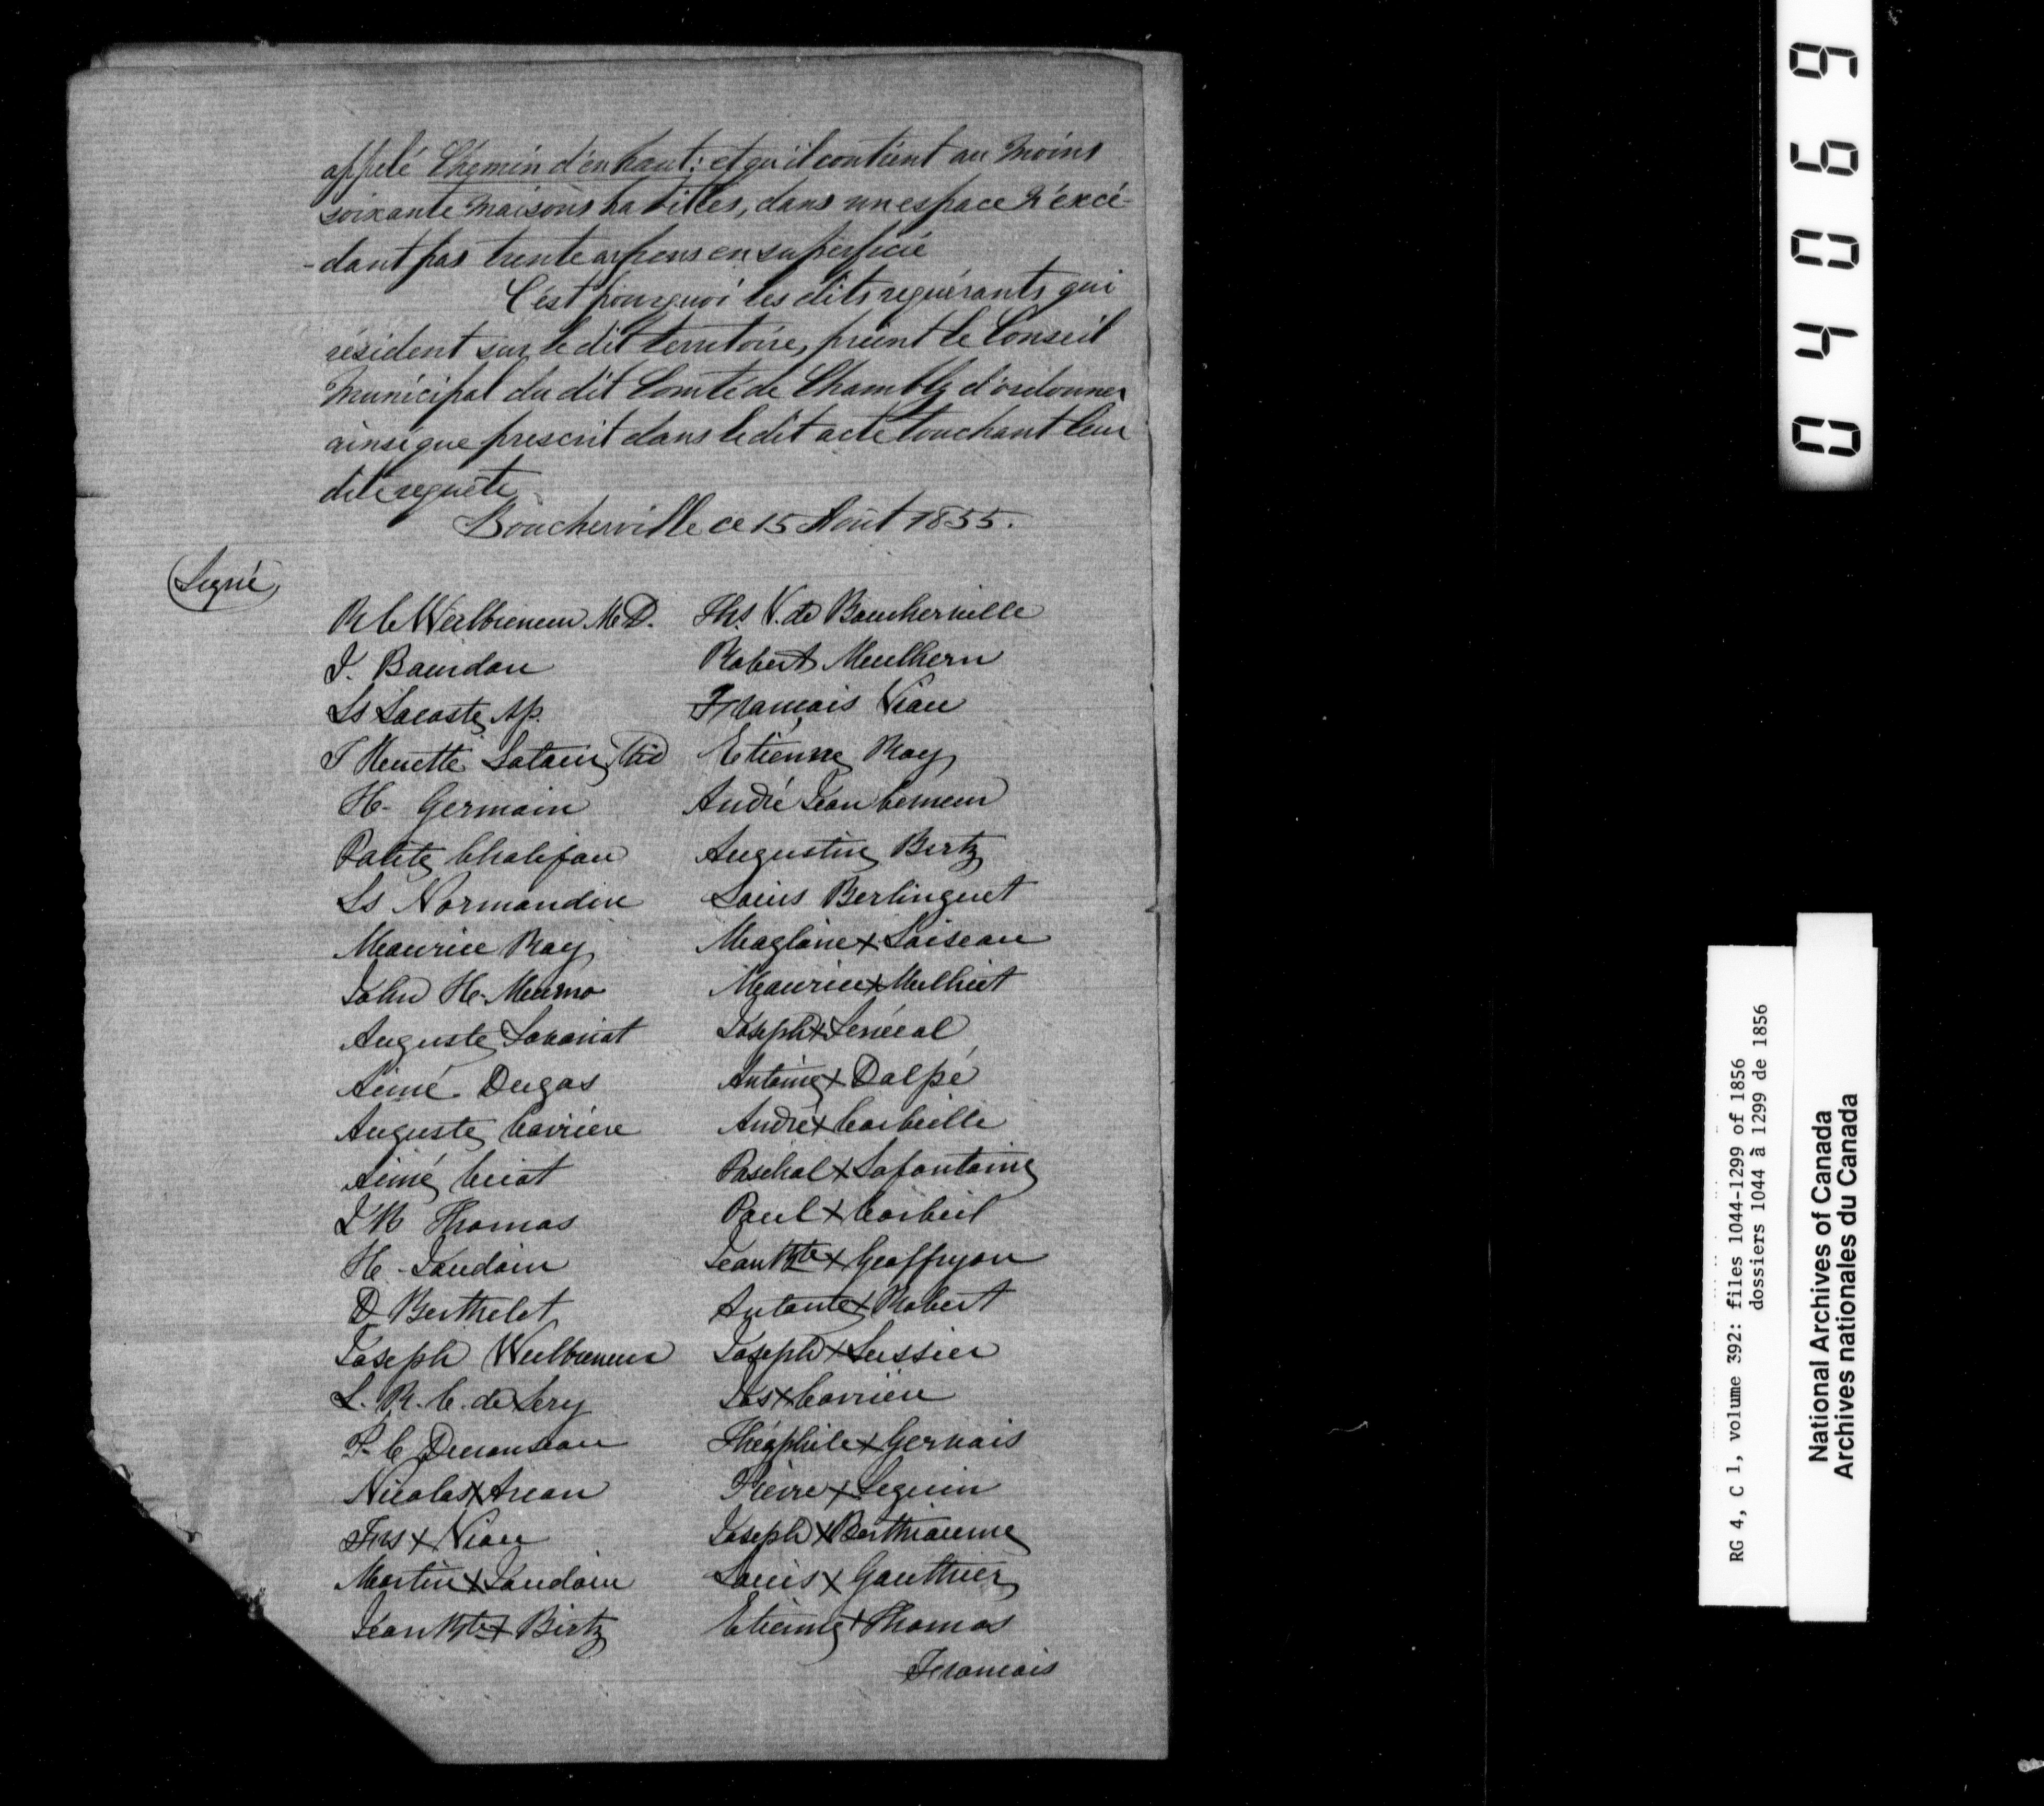 appelé Chemin d'en haut; et qu'il contient au moins
soixante maisons habitées, dans un espace n'excé-
-dant pas trente arpens en superficie
C'est pourquoi les dits requérants qui
résident sur le dit territoire, prient le Conseil
Municipal du dit Comté de Chambly d'ordonner
ainsi que prescrit dans le dit acte touchant leur
dite requête
Boucherville ce 15 Août 1855.
(Signé)
R C Weilbrenner M.D. Ths. V. de Boucherville
J. Bourdon Robert Mulhern
Ls Lacoste, Np. François Viau
Etienne Roy
H. Germain André Jean
Chalifou Augustin Birtz
Ls Normandin Louis Berlinguet
Maurice Roy Magloire x Loiseau
John H. Maurice x
Auguste Joseph x Senécal
Aimé Dugas Antoine x Dalpé
Auguste Carrière André x Corbeille
Aimé Paschal x Lafontaine
J B Thomas Paul x Corbeil
H. Jaudoin Jean Bte x Geoffryon
D Berthelet x Robert
Joseph Weilbrenner Joseph x Lussier
L. R. C. de Lery Jos x
P. C. Théophile x Gervais
Nicolas x Pierre x Seguin
Frs x Viau Joseph x Berthiaume
Martin x Jaudoin Louis x Gauthier
Jean Bte x Birtz Etienne x Thomas
François
04069
RG 4, C 1, volume 392: files 1044-1299 of 1856
dossiers 1044 à 1299 de 1856
National Archives of Canada
Archives nationales du Canada